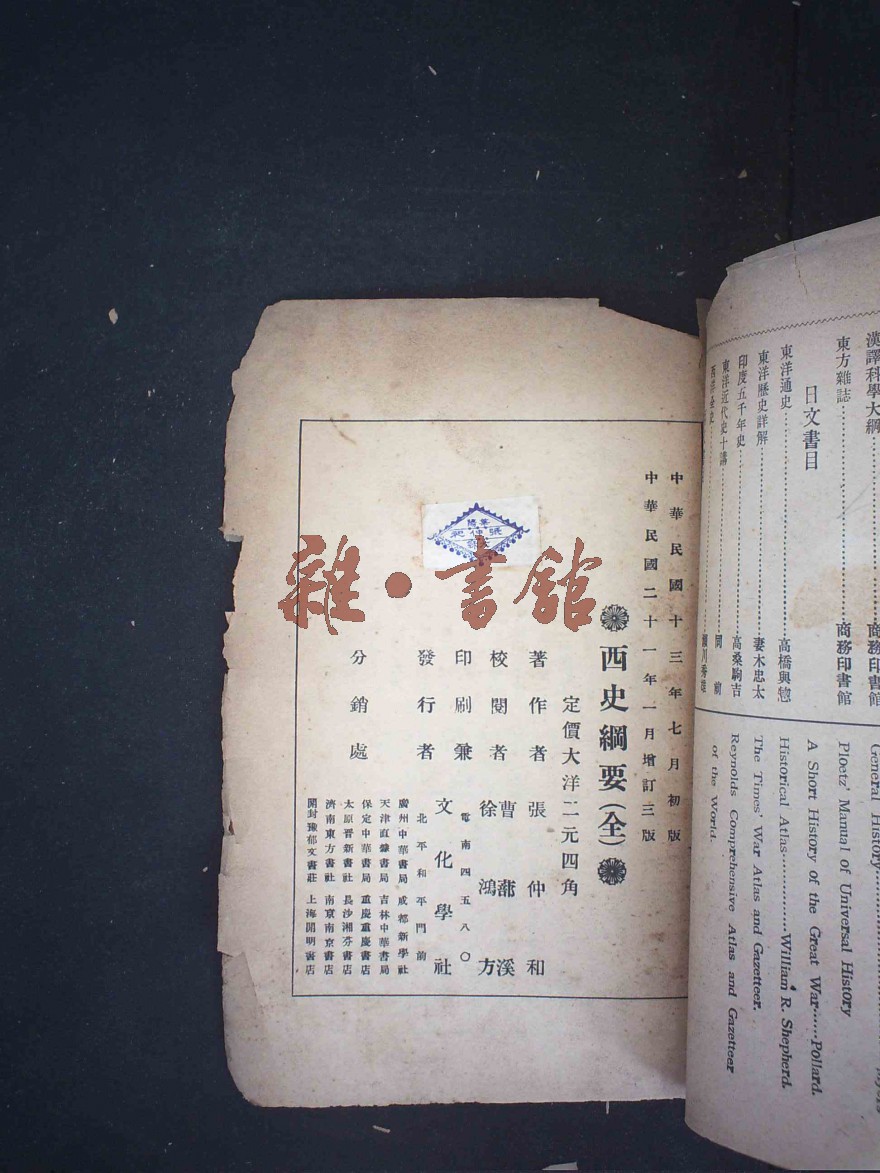 漢譯科學大綱……商務印書館
東方雜誌……商務印書館
日文書目
東洋通史……高橋與惣
東洋歷史詳解……妻木忠太
印度五千年史……高桑駒吉
東洋近代史十講……
General History
Ploetz' Manual of Universal History
A Short History of the Great War……Pollard.
Historical Atlas……William R. Shepherd.
The Times' War Atlas and Gazetteer.
Reynolds Comprehensive Atlas and Gazetteer
of the World.
中華民國十三年七月初版
中華民國二十一年一月增訂三版
西史綱要(全)
定價大洋二元四角
著作者 張仲和
校閱者 曹 溪
徐鴻方
印刷兼
發行者 文化學社
電南四五八〇
北平和平門前
分銷處
廣州中華書局 成都新學社
天津直隸書局 吉林中華書局
保定中華書局 重慶重慶書店
太原晋新書社 長沙湘芬書店
濟南東方書社 南京南京書店
開封豫郁文書莊 上海開明書店
張仲和
雜·書館